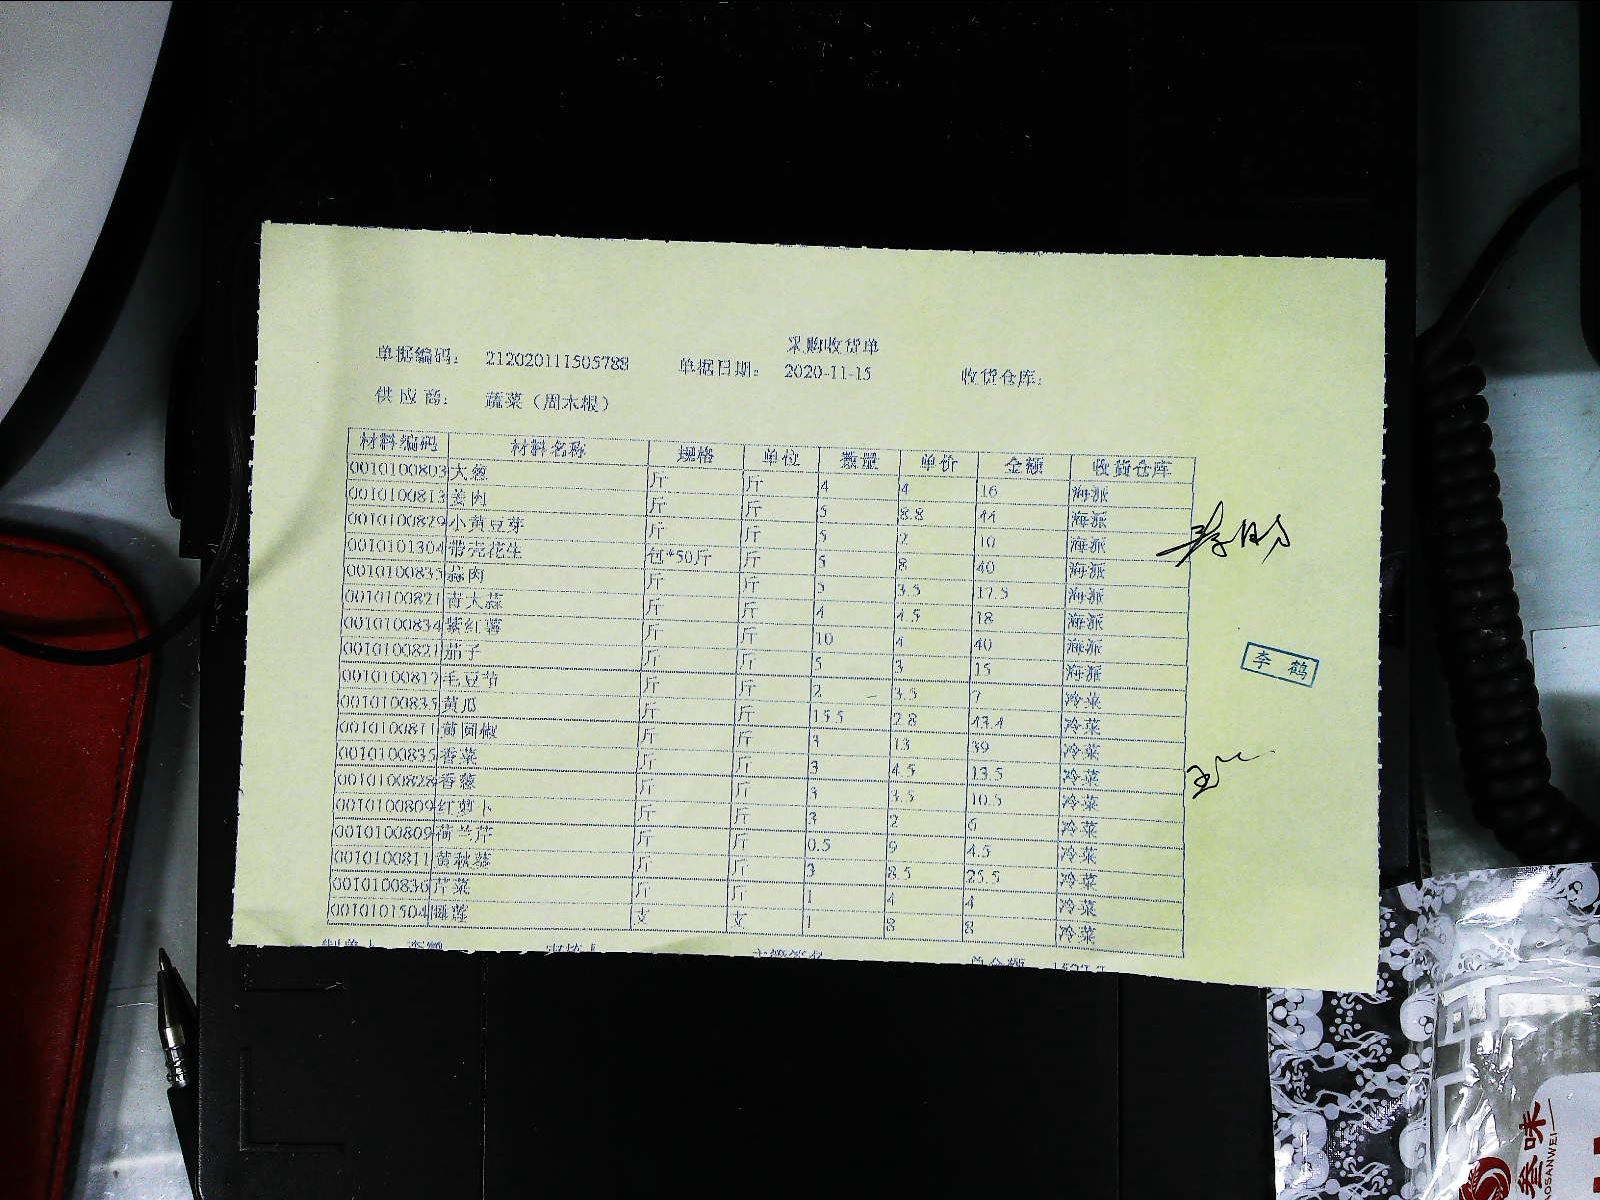 采购收货单
单据编码: 212020111505788 单据日期: 2020-11-15 收货仓库:
供应商: 蔬菜（周木根）
材料编码 材料名称 规格 单位 数量 单价 金额 收货仓库
0010100803 大葱 斤 斤 4 4 16 海派
0010100813 姜肉 斤 斤 5 8.8 44 海派
0010100829 小黄豆芽 斤 斤 5 2 10 海派
0010101304 带壳花生 包*50斤 斤 5 8 40 海派
0010100835 蒜肉 斤 斤 5 3.5 17.5 海派
0010100821 青大蒜 斤 斤 4 4.5 18 海派
0010100834 紫红薯 斤 斤 10 4 40 海派
0010100821 茄子 斤 斤 5 3 15 海派
0010100817 毛豆节 斤 斤 2 3.5 7 冷菜
0010100835 黄瓜 斤 斤 15.5 2.8 43.4 冷菜
0010100811 黄圆椒 斤 斤 3 13 39 冷菜
0010100835 香菜 斤 斤 3 4.5 13.5 冷菜
0010100828 香葱 斤 斤 3 3.5 10.5 冷菜
0010100809 红萝卜 斤 斤 3 2 6 冷菜
0010100809 荷兰芹 斤 斤 0.5 9 4.5 冷菜
0010100811 黄秋葵 斤 斤 3 8.5 25.5 冷菜
0010100836 芹菜 斤 斤 1 4 4 冷菜
0010101504 睡莲 支 支 1 8 8 冷菜
李鹤
叁味
OSANWEI